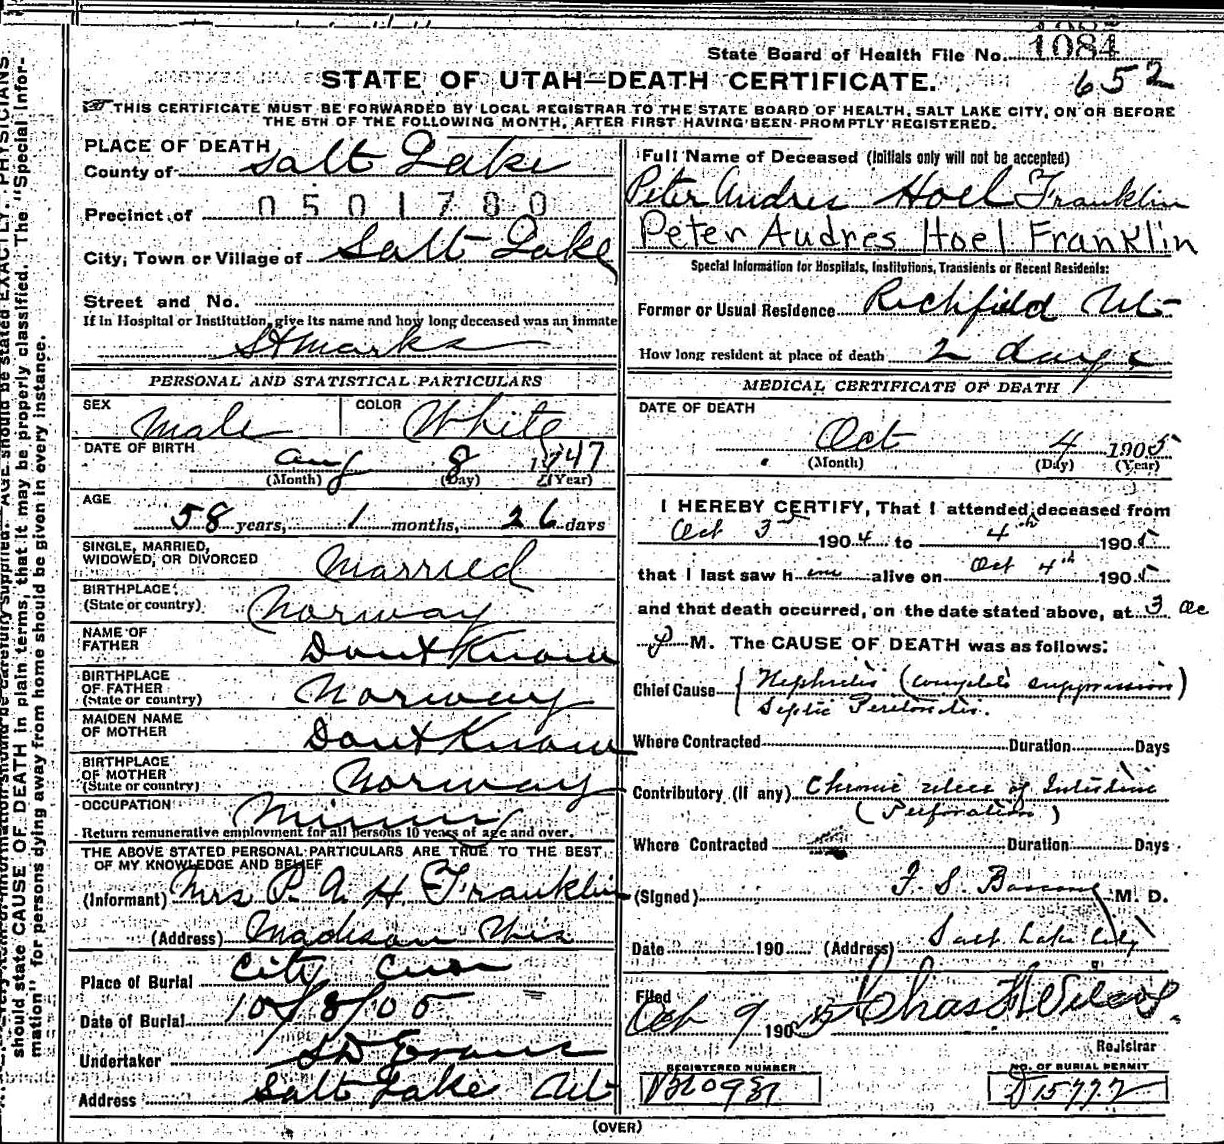 State Board of Health File No. 1084
652
STATE OF UTAH—DEATH CERTIFICATE.
THIS CERTIFICATE MUST BE FORWARDED BY LOCAL REGISTRAR TO THE STATE BOARD OF HEALTH, SALT LAKE CITY, ON OR BEFORE
THE 5TH OF THE FOLLOWING MONTH, AFTER FIRST HAVING BEEN PROMPTLY REGISTERED.
PLACE OF DEATH
County of Salt Lake
Precinct of 0501780
City, Town or Village of Salt Lake
Street and No.
If in Hospital or Institution, give its name and how long deceased was an inmate
St Marks
PERSONAL AND STATISTICAL PARTICULARS
SEX Male COLOR White
DATE OF BIRTH Aug 8 1847
(Month) (Day) (Year)
AGE
58 years, 1 months, 26 days
SINGLE, MARRIED,
WIDOWED, OR DIVORCED Married
BIRTHPLACE
(State or country) Norway
NAME OF
FATHER Dont Know
BIRTHPLACE
OF FATHER
(State or country) Norway
MAIDEN NAME
OF MOTHER Dont Know
BIRTHPLACE
OF MOTHER
(State or country) Norway
OCCUPATION
Return remunerative employment for all persons 10 years of age and over.
THE ABOVE STATED PERSONAL PARTICULARS ARE TRUE TO THE BEST
OF MY KNOWLEDGE AND BELIEF
(Informant) Mrs P. A H Franklin
(Address) Madison Wis
Place of Burial City
Date of Burial 10/8/05
Undertaker S D Evans
Address Salt Lake Ut
Full Name of Deceased (Initials only will not be accepted)
Peter Andres Hoel Franklin
Peter Audres Hoel Franklin
Special Information for Hospitals, Institutions, Transients or Recent Residents:
Former or Usual Residence Richfield Ut
How long resident at place of death 2 days
MEDICAL CERTIFICATE OF DEATH
DATE OF DEATH
Oct 4 1905
(Month) (Day) (Year)
I HEREBY CERTIFY, That I attended deceased from
Oct 3 1904 to 4th 1905
that I last saw him alive on Oct 4th 1905
and that death occurred, on the date stated above, at 3
P M. The CAUSE OF DEATH was as follows:
Chief Cause Nephritis (complete suppression)
Septic Peritonitis.
Where Contracted Duration Days
Contributory (if any) Chronic ulcer of Intestine
(Perforation)
Where Contracted Duration Days
(Signed) F. S. Bascom M. D.
Date 190 (Address) Salt Lake City
Filed
Oct 9 1905
Registrar
REGISTERED NUMBER NO. OF BURIAL PERMIT
D15772
(OVER)
should state CAUSE OF DEATH in plain terms, that it may be properly classified. The "Special Infor-
mation" for persons dying away from home should be given in every instance.